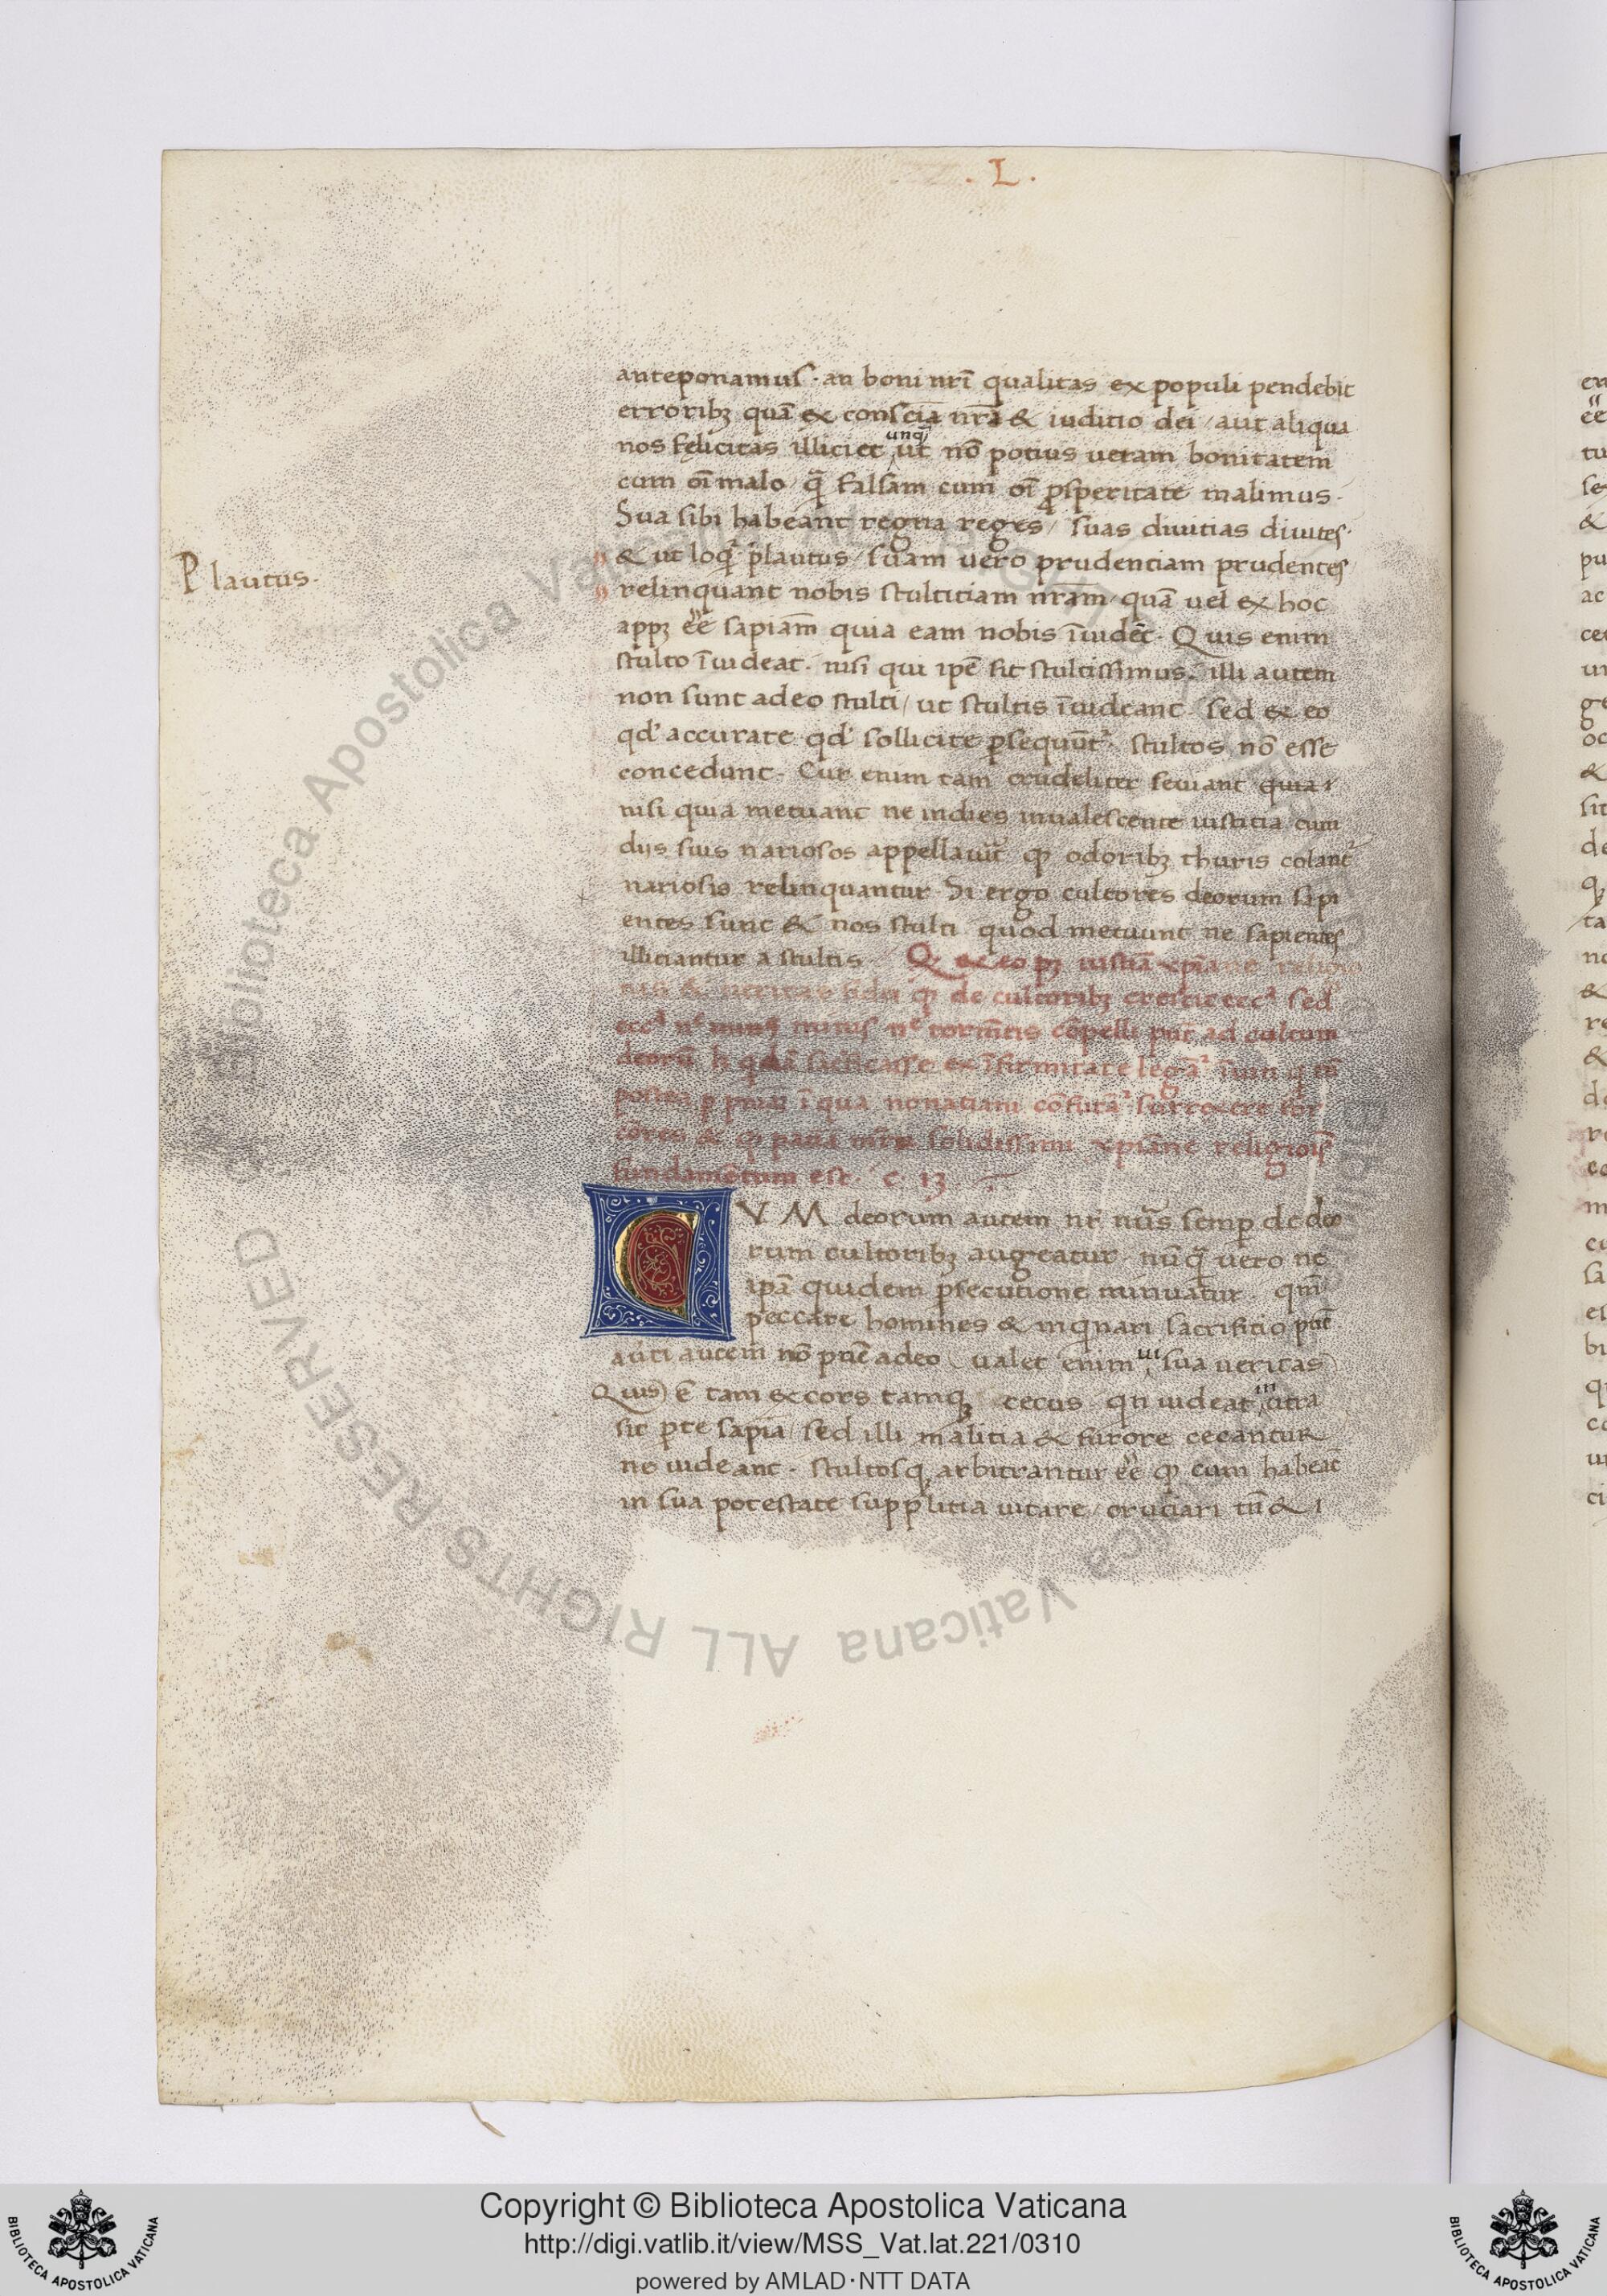 . L .
anteponamus · an boni nrī qualitas ex populi pendebit
erroribꝫ quā ex consciā nrā & iuditio dei / aut aliqua
nos felicitas illiciet unq̄ ut nō potius ueram bonitatem
cum oī malo / q̄ falsam cum oī ꝓsperitate malimus ·
Sua sibi habeant regna reges / suas diuitias diuites ·
& ut loqr̄ plautus / suam uero prudentiam prudentes /
Plautus ·
relinquant nobis stultitiam nram / quā uel ex hoc
appꝫ eē sapiam̄ quia eam nobis īuidēt · Quis enim
stulto īuideat · nisi qui ipē sit stultissimus · illi autem
non sunt adeo stulti / ut stultis īuideant · sed ex eo
qd' accurate qd' sollicite ꝑsequūt² · stultos nō esse
concedunt · Cur enim tam crudeliter seuiant quia i
nisi quia metuant ne indies inualescente iustitia cum
diis suis nariosos appellauit̄ ꝙ odoribꝫ thuris colant²
nariosis relinquantur Si ergo cultores deorum sapi
entes sunt & nos stulti quod metuunt ne sapientes
illiciantur a stultis · Q ex eo pꝫ
& ueritas fidei ꝙ de cultoribꝫ crescit ecc² sed
minus torm̄tis cōpelli pn̄t ad cultum
deorū ex īfirmitate
postea ī qua
& ꝙ solidissimū xpiāne religiois̄
fundamētum est · c · 13
CVM deorum autem nr̄ nūs semp̱ de deo
rum cultoribꝫ augeatur · nūq̄ uero ne
ipā quidem ꝑsecutione minuatur · qm̄
peccare homines & inqinari sacrifitio pn̄t
auti autem nō pn̄t adeo · ualet enim ui sua ueritas
Quis ē tam excors tamqꝫ cecus · qn uideat in utra
sit ꝑte sapia / sed illi malitia & furore cecantur
ne uideant · stultosqꝫ arbitrantur eē ꝙ cum habeāt
in sua potestate supplitia uitare / cruciari tn̄ & i
Biblioteca Apostolica Vaticana ALL RIGHTS RESERVED ©
Copyright © Biblioteca Apostolica Vaticana
http://digi.vatlib.it/view/MSS_Vat.lat.221/0310
powered by AMLAD·NTT DATA
BIBLIOTECA APOSTOLICA VATICANA
BIBLIOTECA APOSTOLICA VATICANA